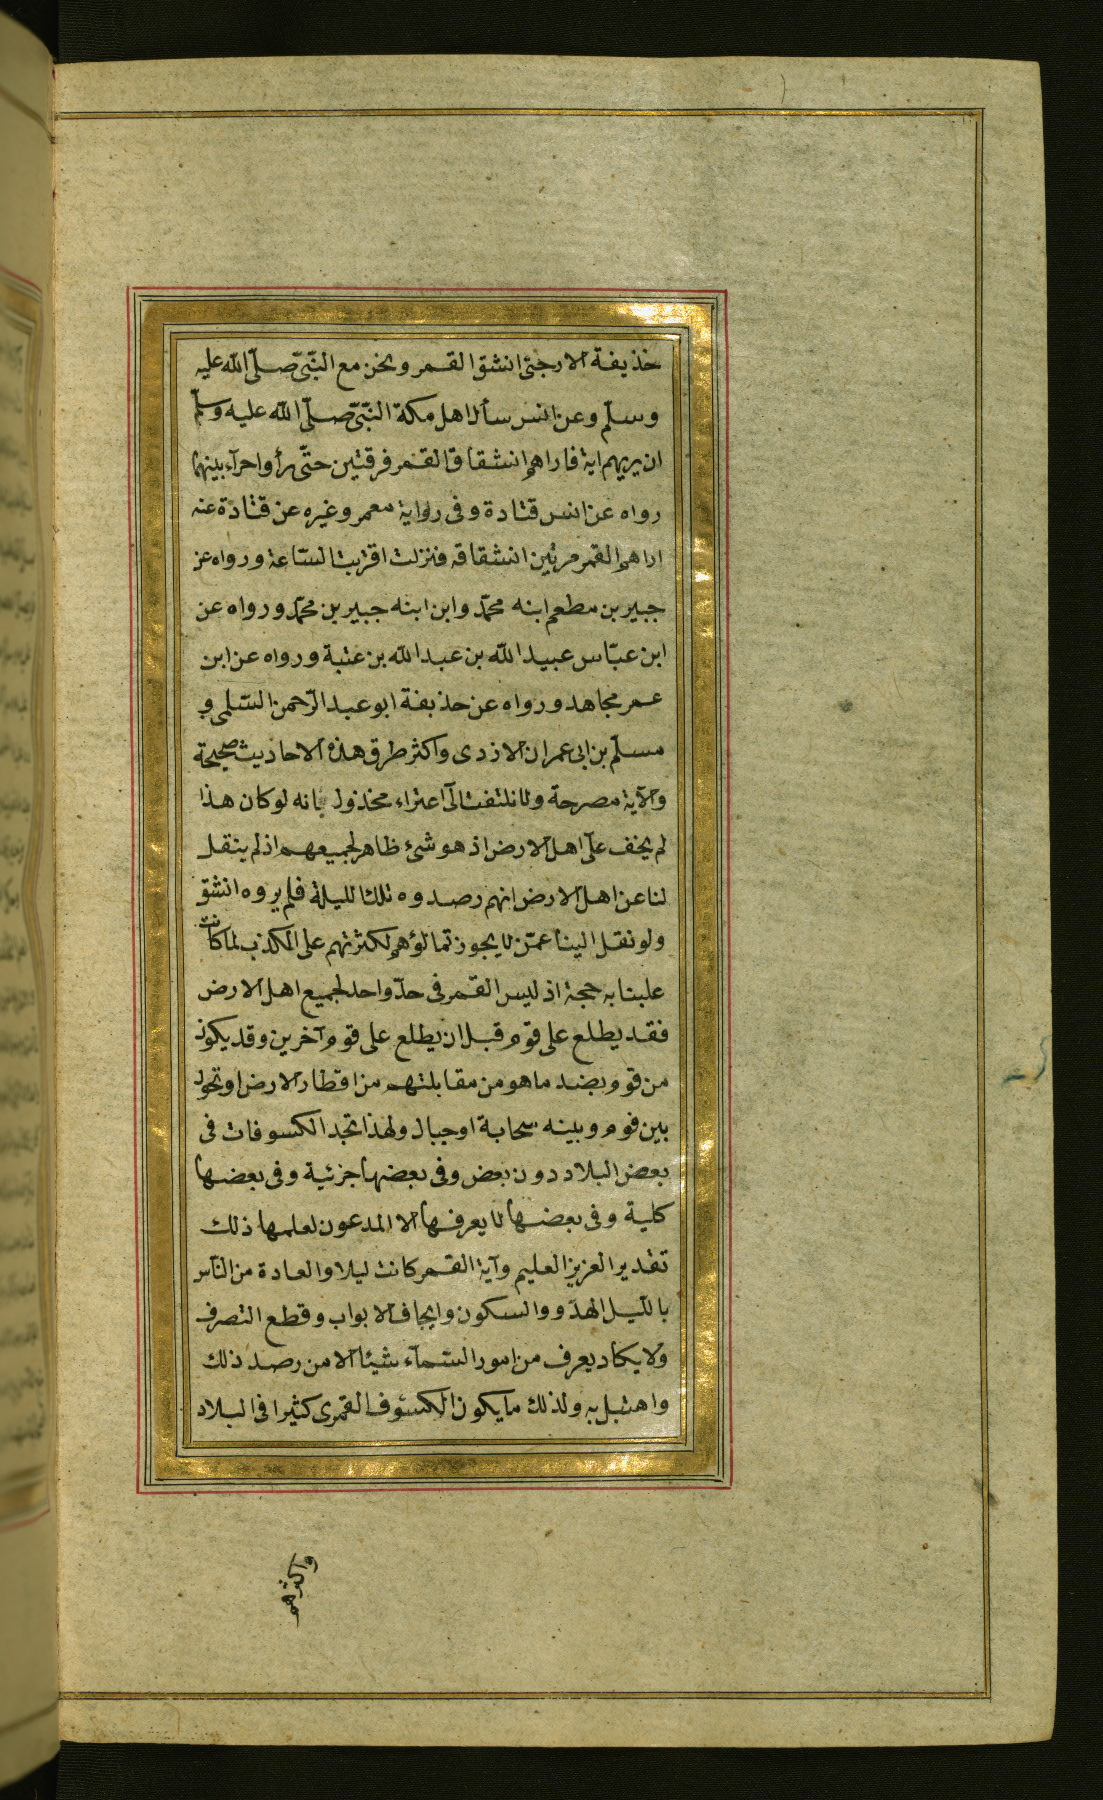 حذيفة الارجى انشق القمر ونحن مع النبّى صلّى الله عليه
وسلّم وعن انس سأل اهل مكة النبّى صلّى الله عليه وسلّم
ان يريهم اية فاراهم انشقاق القمر فرقتين حتّى رأوا حرآء بينهما
رواه عن انس قتادة وفى رواية معمر وغيره عن قتادة عنه
اراهم القمر مرتين انشقاقه فنزلت اقتربت السّاعة ورواه عن
جبير بن مطعم ابنه محمّد وابن ابنه جبير بن محمّد ورواه عن
ابن عبّاس عبيد الله بن عبد الله بن عتبة ورواه عن ابن
عمر مجاهد ورواه عن حذيفة ابو عبد الرّحمن السّلمى و
مسلم بن ابى عمران الازدى واكثر طرق هذه الاحاديث صحيحة
والآية مصرحة ولا نلتفت الى اعتراء مخذول بانه لو كان هذا
لم يخف على اهل الارض اذ هو شئ ظاهر لجميعهم اذ لم ينقل
لنا عن اهل الارض انهم رصدوه تلك الليلة فلم يروه انشق
ولو نقل الينا عمّن لا يجوز تمالؤهم لكثرتهم على الكذب لما كانت
علينا به حجة اذ ليس القمر فى حدّ واحد لجميع اهل الارض
فقد يطلع على قوم قبل ان يطلع على قوم آخرين وقد يكون
من قوم بضد ما هو من مقابلتهم من اقطار الارض او تحول
بين قوم وبينه سحابة او جبال ولهذا تجد الكسوفات فى
بعض البلاد دون بعض وفى بعضها جزئية وفى بعضها
كلية وفى بعضها لا يعرفها الا المدعون لعلمها ذلك
تقدير العزيز العليم وآية القمر كانت ليلا والعادة من النّاس
بالليل الهدو والسكون وايجاف الابواب وقطع التصرف
ولا يكاد يعرف من امور السّمآء شيئا الا من رصد ذلك
واهتبل به ولذلك ما يكون الكسوف القمرى كثيرا فى البلاد
واكثرهم